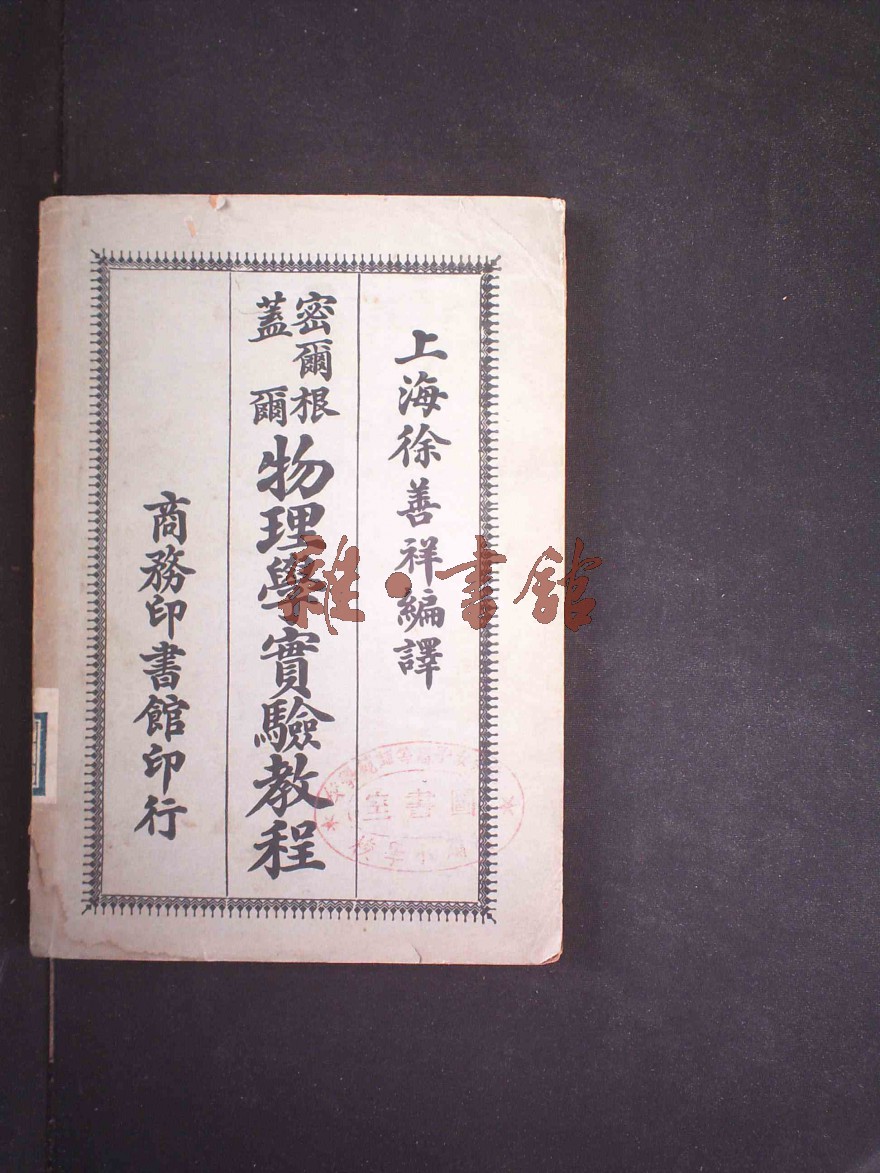 上海徐善祥編譯
密爾根
蓋爾
物理學實驗教程
商務印書館印行
雜·書館
圖書室